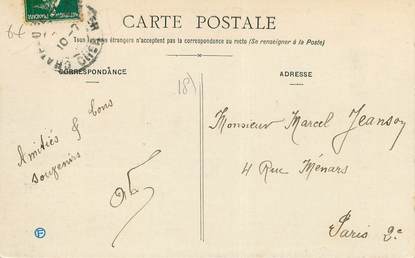 CARTE POSTALE
Tous les pays étrangers n'acceptent pas la correspondance au recto (Se renseigner à la Poste)
CORRESPONDANCE
ADRESSE
181
Amitiés & bons
souvenirs
Monsieur Marcel Jeanson
4 Rue Ménars
Paris 2e